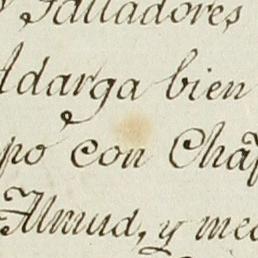 Talladores
Adarga bien
po con Chap
Almud, y med